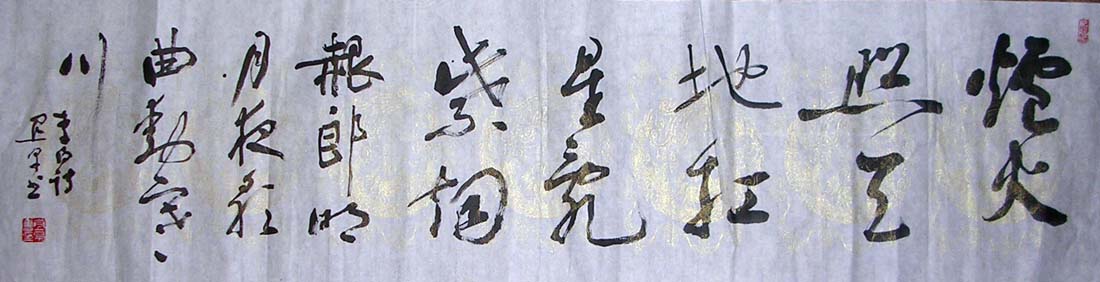 爐火
照天
地红
星亂
紫烟
赧郎明
月夜歌
曲動寒
川
李白诗
书